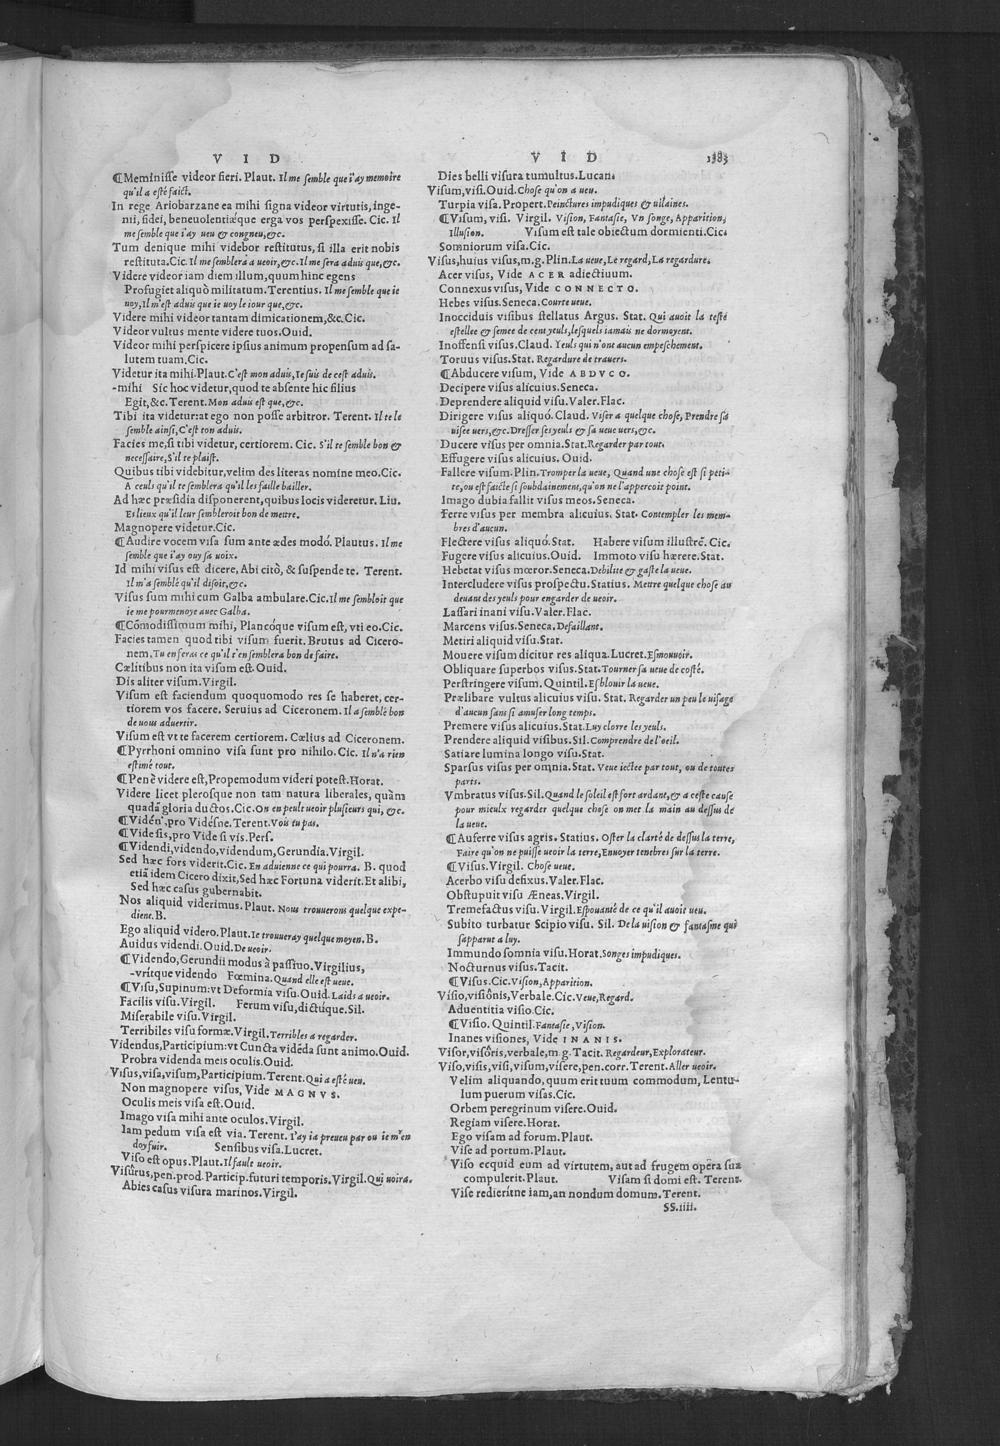 V I D
¶Meminisse videor fieri. Plaut. Il me semble que i'ay memoire
qu'il a esté faict.
In rege Ariobarzane ea mihi signa videor virtutis, inge-
nii, fidei, beneuolentiæque erga vos perspexisse. Cic. Il
me semble que i'ay ueu & congneu,&c.
Tum denique mihi videbor restitutus, si illa erit nobis
restituta. Cic. Il me semblera a ueoir,&c. Il me sera aduis que,&c.
Videre videor iam diem illum, quum hinc egens
Profugiet aliquò militatum. Terentius. Il me semble que ie
uoy, Il m'est aduis que ie uoy le iour que,&c.
Videre mihi videor tantam dimicationem,&c. Cic.
Videor vultus mente videre tuos. Ouid.
Videor mihi perspicere ipsius animum propensum ad sa-
lutem tuam. Cic.
Videtur ita mihi. Plaut. C'est mon aduis, Ie suis de cest aduis.
-mihi Sic hoc videtur, quod te absente hic filius
Egit,&c. Terent. Mon aduis est que,&c.
Tibi ita videtur: at ego non posse arbitror. Terent. Il te le
semble ainsi, C'est ton aduis.
Facies me, si tibi videtur, certiorem. Cic. S'il te semble bon &
necessaire, S'il te plaist.
Quibus tibi videbitur, velim des literas nomine meo. Cic.
A ceuls qu'il te semblera qu'il les faille bailler.
Ad hæc præsidia disponerent, quibus locis videretur. Liu.
Es lieux qu'il leur sembleroit bon de mettre.
Magnopere videtur. Cic.
¶Audire vocem visa sum ante ædes modó. Plautus. Il me
semble que i'ay ouy sa uoix.
Id mihi visus est dicere, Abi citò, & suspende te. Terent.
Il m'a semblé qu'il disoit,&c.
Visus sum mihi cum Galba ambulare. Cic. Il me sembloit que
ie me pourmenoye auec Galba.
¶Cõmodissimum mihi, Plancóque visum est, vti eo. Cic.
Facies tamen quod tibi visum fuerit. Brutus ad Cicero-
nem, Tu en feras ce qu'il t'en semblera bon de faire.
Cælitibus non ita visum est. Ouid.
Dis aliter visum. Virgil.
Visum est faciendum quoquomodo res se haberet, cer-
tiorem vos facere. Seruius ad Ciceronem. Il a semblé bon
de uous aduertir.
Visum est vt te facerem certiorem. Cælius ad Ciceronem.
¶Pyrrhoni omnino visa sunt pro nihilo. Cic. Il n'a rien
estimé tout.
¶Penè videre est, Propemodum videri potest. Horat.
Videre licet plerosque non tam natura liberales, quàm
quadã gloria ductos. Cic. On en peult ueoir plusieurs qui,&c.
¶Vidén', pro Vidésne. Terent. Vois tu pas.
¶Vide sis, pro Vide si vis. Pers.
¶Videndi, videndo, videndum, Gerundia. Virgil.
Sed hæc fors viderit. Cic. En aduienne ce qui pourra. B. quod
etiã idem Cicero dixit, Sed hæc Fortuna viderit. Et alibi,
Sed hæc casus gubernabit.
Nos aliquid viderimus. Plaut. Nous trouuerons quelque expe-
dient. B.
Ego aliquid videro. Plaut. Ie trouueray quelque moyen. B.
Auidus videndi. Ouid. De ueoir.
¶Videndo, Gerundii modus à passiuo. Virgilius,
-vrítque videndo Fœmina. Quand elle est ueue.
¶Visu, Supinum: vt Deformia visu. Ouid. Laids a ueoir.
Facilis visu. Virgil. Ferum visu, dictúque. Sil.
Miserabile visu. Virgil.
Terribiles visu formæ. Virgil. Terribles a regarder.
Videndus, Participium: vt Cuncta vidẽda sunt animo. Ouid.
Probra videnda meis oculis. Ouid.
Visus, visa, visum, Participium. Terent. Qui a esté ueu.
Non magnopere visus, Vide MAGNVS.
Oculis meis visa est. Ouid.
Imago visa mihi ante oculos. Virgil.
Iam pedum visa est via. Terent. I'ay ia preueu par ou ie m'en
doy fuir. Sensibus visa. Lucret.
Viso est opus. Plaut. Il faule ueoir.
Visûrus, pen. prod. Particip. futuri temporis. Virgil. Qui uoira.
Abies casus visura marinos. Virgil.
V I D 1383
Dies belli visura tumultus. Lucan.
Visum, visi. Ouid. Chose qu'on a ueu.
Turpia visa. Propert. Peinctures impudiques & uilaines.
¶Visum, visi. Virgil. Vision, Fantasie, Vn songe, Apparition,
Illusion. Visum est tale obiectum dormienti. Cic.
Somniorum visa. Cic.
Visus, huius visus, m.g. Plin. La ueue, Le regard, La regardure.
Acer visus, Vide ACER adiectiuum.
Connexus visus, Vide CONNECTO.
Hebes visus. Seneca. Courte ueue.
Inocciduis visibus stellatus Argus. Stat. Qui auoit la teste
estellee & semee de cent yeuls, lesquels iamais ne dormoyent.
Inoffensi visus. Claud. Yeuls qui n'one aucun empeschement.
Toruus visus. Stat. Regardure de trauers.
¶Abducere visum, Vide ABDVCO.
Decipere visus alicuius. Seneca.
Deprendere aliquid visu. Valer. Flac.
Dirigere visus aliquó. Claud. Viser a quelque chose, Prendre sa
uisee uers,&c. Dresser ses yeuls & sa ueue uers,&c.
Ducere visus per omnia. Stat. Regarder par tout.
Effugere visus alicuius. Ouid.
Fallere visum. Plin. Tromper la ueue, Quand une chose est si peti-
te, ou est faicte si soubdainement, qu'on ne l'appercoit point.
Imago dubia fallit visus meos. Seneca.
Ferre visus per membra alicuius. Stat. Contempler les mem-
bres d'aucun.
Flectere visus aliquó. Stat. Habere visum illustrẽ. Cic.
Fugere visus alicuius. Ouid. Immoto visu hærere. Stat.
Hebetat visus mœror. Seneca. Debilite & gaste la ueue.
Intercludere visus prospectu. Statius. Mettre quelque chose au
deuant des yeuls pour engarder de ueoir.
Lassari inani visu. Valer. Flac.
Marcens visus. Seneca. Defaillant.
Metiri aliquid visu. Stat.
Mouere visum dicitur res aliqua. Lucret. Esmouuoir.
Obliquare superbos visus. Stat. Tourner sa ueue de costé.
Perstringere visum. Quintil. Esblouir la ueue.
Prælibare vultus alicuius visu. Stat. Regarder un peu le uisage
d'aucun sans si amuser long temps.
Premere visus alicuius. Stat. Luy clorre les yeuls.
Prendere aliquid visibus. Sil. Comprendre de l'oeil.
Satiare lumina longo visu. Stat.
Sparsus visus per omnia. Stat. Veue iectee par tout, ou de toutes
parts.
Vmbratus visus. Sil. Quand le soleil est fort ardant, & a ceste cause
pour mieulx regarder quelque chose on met la main au dessus de
la ueue.
¶Auferre visus agris. Statius. Oster la clarté de dessus la terre,
Faire qu'on ne puisse ueoir la terre, Enuoyer tenebres sur la terre.
¶Visus. Virgil. Chose ueue.
Acerbo visu defixus. Valer. Flac.
Obstupuit visu Æneas. Virgil.
Tremefactus visu. Virgil. Espouanté de ce qu'il auoit ueu.
Subito turbatur Scipio visu. Sil. De la uision & fantasme qui
s'apparut a luy.
Immundo somnia visu. Horat. Songes impudiques.
Nocturnus visus. Tacit.
¶Visus. Cic. Vision, Apparition.
Visio, visiônis, Verbale. Cic. Veue, Regard.
Aduentitia visio. Cic.
¶Visio. Quintil. Fantasie, Vision.
Inanes visiones, Vide INANIS.
Visor, visôris, verbale, m.g. Tacit. Regardeur, Explorateur.
Viso, visis, visi, visum, visere, pen. corr. Terent. Aller ueoir.
Velim aliquando, quum erit tuum commodum, Lentu-
lum puerum visas. Cic.
Orbem peregrinum visere. Ouid.
Regiam visere. Horat.
Ego visam ad forum. Plaut.
Vise ad portum. Plaut.
Viso ecquid eum ad virtutem, aut ad frugem opera sua
compulerit. Plaut. Visam si domi est. Terent.
Vise redieritne iam, an nondum domum. Terent.
SS.iiii.